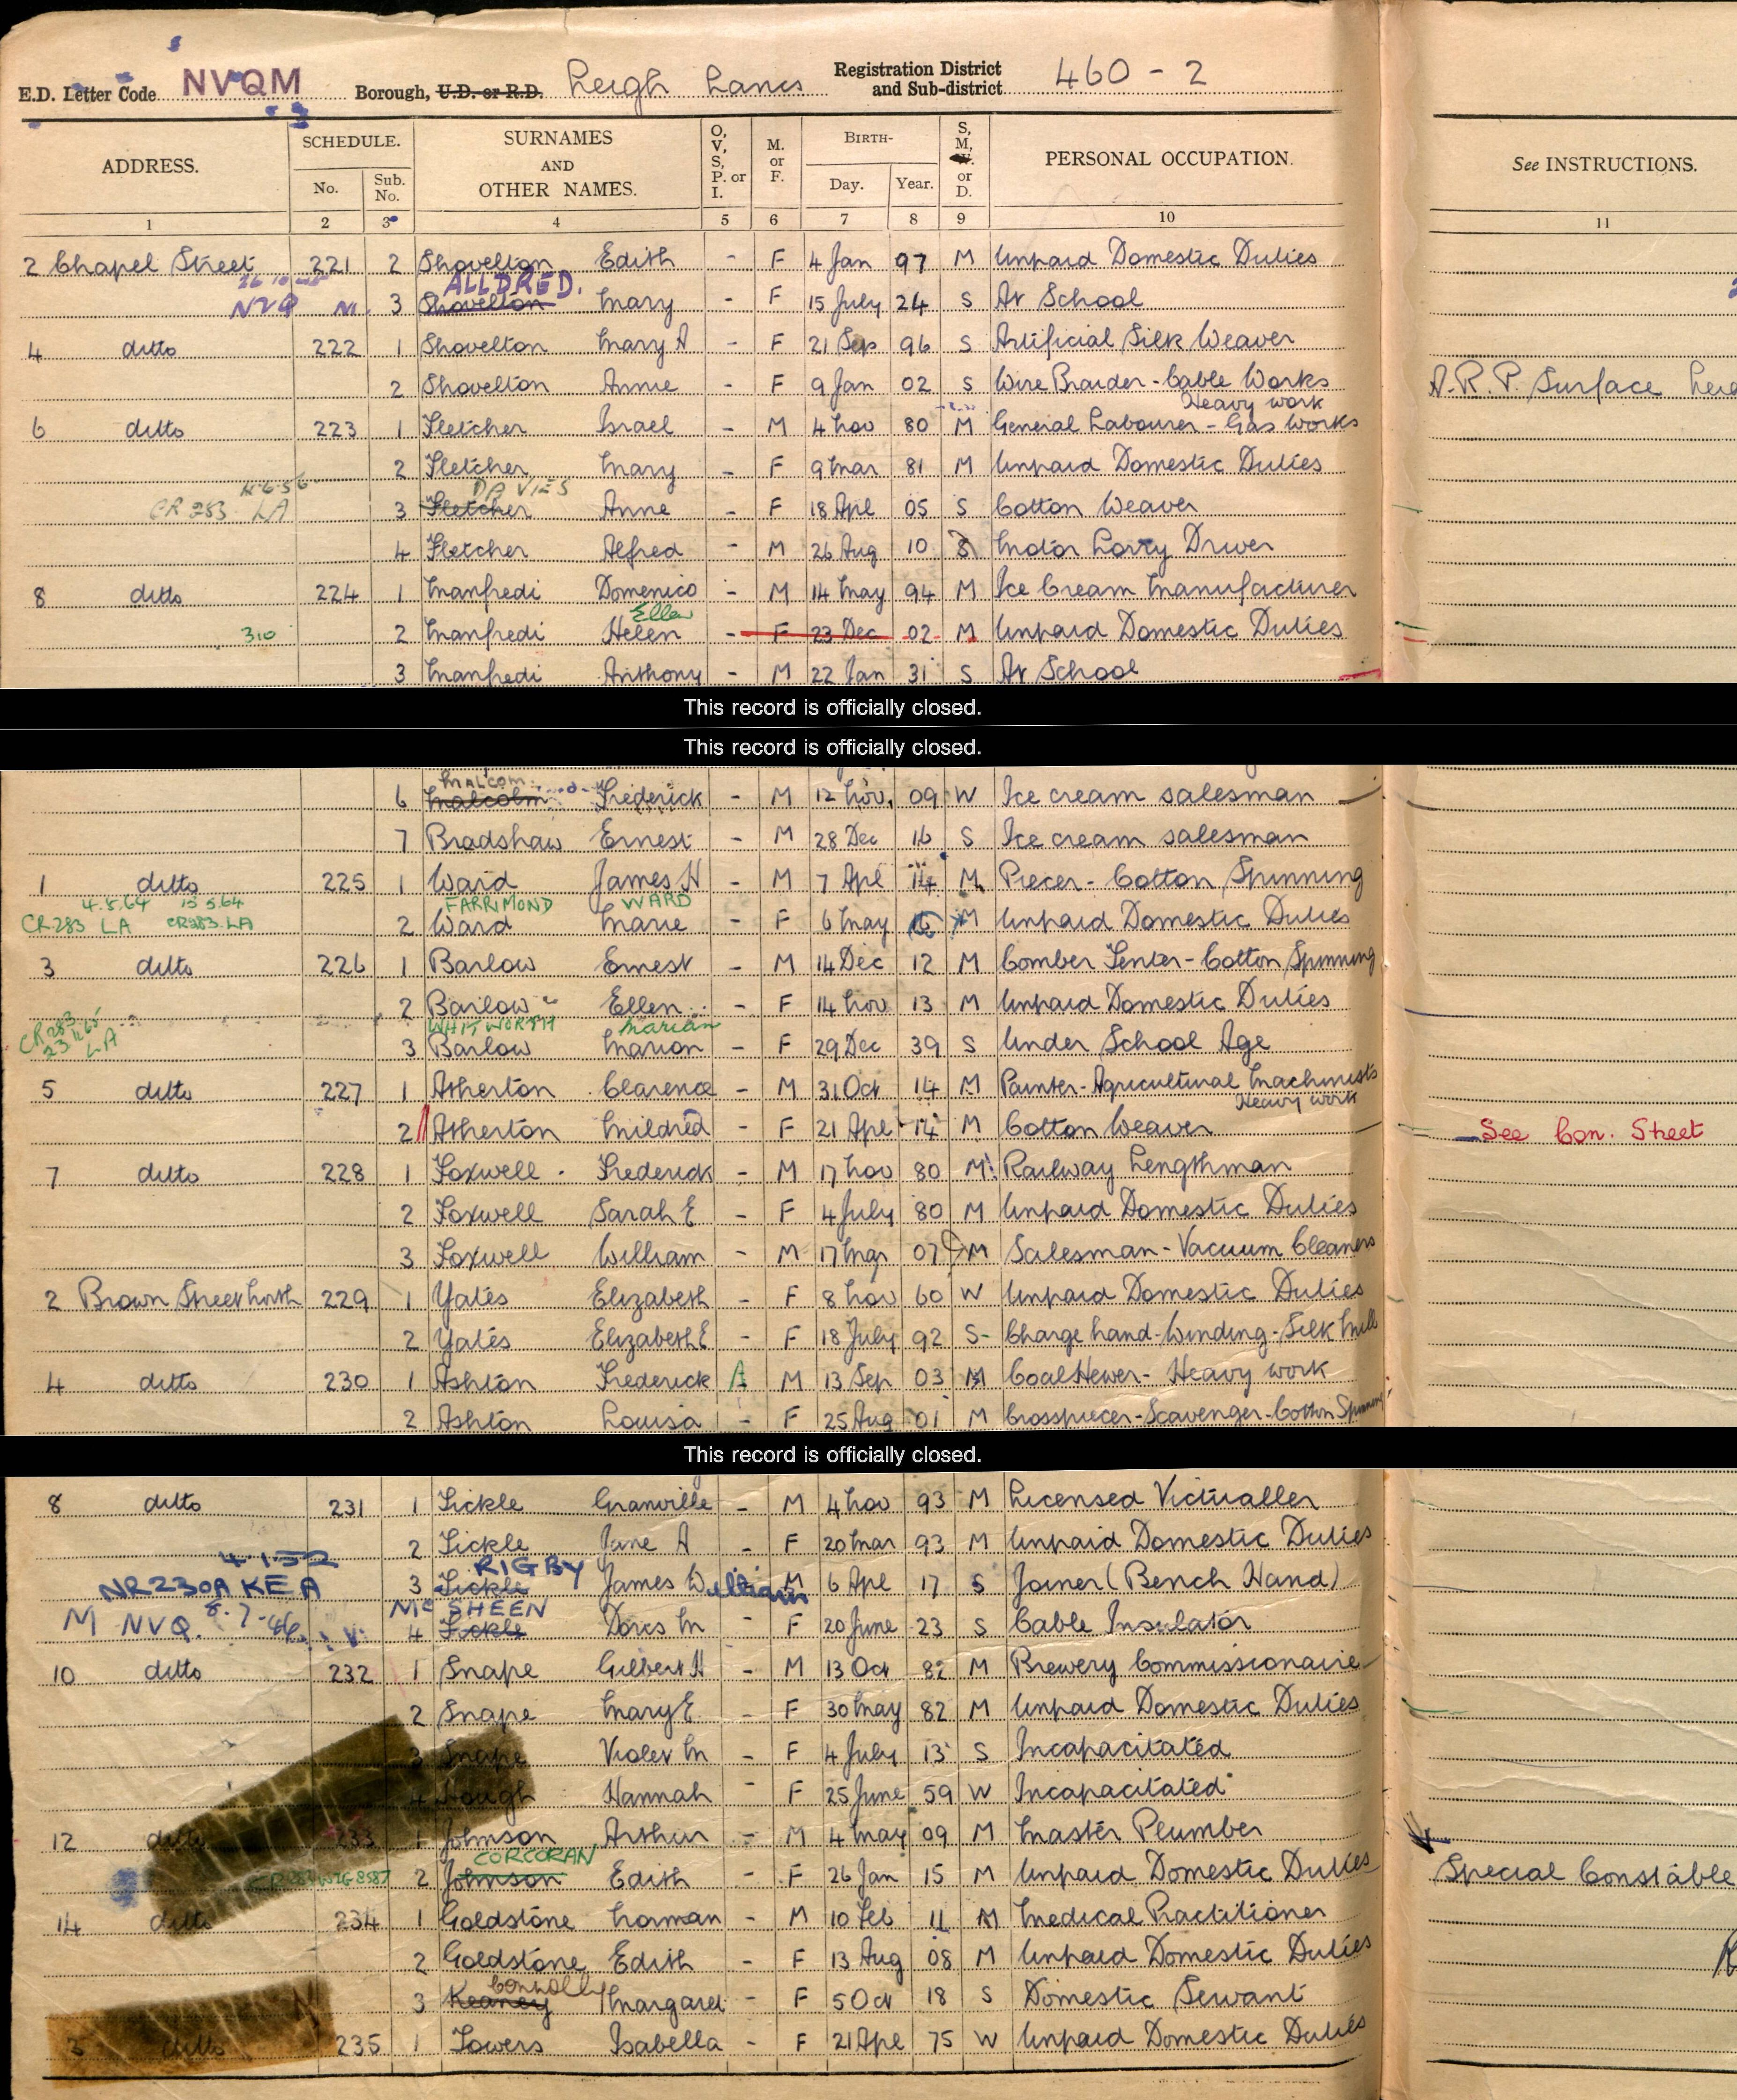 E.D. Letter Code NVQM Borough, U.D. or R.D. Leigh Lancs Registration District and Sub-district 460 - 2
ADDRESS. SCHEDULE. No. Sub. No. SURNAMES AND OTHER NAMES. O, V, S, P. or I. M. or F. BIRTH- Day. Year. S, M, W. or D. PERSONAL OCCUPATION. See INSTRUCTIONS.
1 2 3 4 5 6 7 8 9 10 11
2 Chapel Street 221 2 Shovelton Edith - F 4 Jan 97 M Unpaid Domestic Duties
ALLDRED.
NVQ 3 Shovelton Mary - F 15 July 24 S At School
4 ditto 222 1 Shovelton Mary A - F 21 Sep 96 S Artificial Silk Weaver
2 Shovelton Annie - F 9 Jan 02 S Wire Braider - Cable Works A.R.P. Surface
Heavy work
6 ditto 223 1 Fletcher Israel - M 4 Nov 80 M General Labourer - Gas Works
2 Fletcher Mary - F 9 Mar 81 M Unpaid Domestic Duties
DAVIES
CR 283 LA 3 Fletcher Anne - F 18 Apl 05 S Cotton Weaver
4 Fletcher Alfred - M 26 Aug 10 S Motor Lorry Driver
8 ditto 224 1 Manfredi Domenico - M 14 May 94 M Ice Cream Manufacturer
Ellen
310 2 Manfredi Helen - F 23 Dec 02 M Unpaid Domestic Duties
3 Manfredi Anthony - M 22 Jan 31 S At School
This record is officially closed.
This record is officially closed.
MALCOM
6 Malcolm Frederick - M 12 Nov. 09 W Ice cream salesman
7 Bradshaw Ernest - M 28 Dec 16 S Ice cream salesman
1 ditto 225 1 Ward James H - M 7 Apl 14 M Piecer - Cotton Spinning
4.5.64 15 5.64 FARRIMOND WARD
CR283 LA CR283 LA 2 Ward Marie - F 6 May M Unpaid Domestic Duties
3 ditto 226 1 Barlow Ernest - M 14 Dec 12 M Comber Tenter - Cotton Spinning
2 Barlow Ellen - F 14 Nov 13 M Unpaid Domestic Duties
CR283 WHITWORTH Marian
LA 3 Barlow Marion - F 29 Dec 39 S Under School Age
5 ditto 227 1 Atherton Clarence - M 31 Oct 14 M Painter - Agricultural Machinists
Heavy work
2 Atherton Mildred - F 21 Apl 14 M Cotton Weaver See Con. Street
7 ditto 228 1 Foxwell Frederick - M 17 Nov 80 M Railway Lengthman
2 Foxwell Sarah E - F 4 July 80 M Unpaid Domestic Duties
3 Foxwell William - M 17 Mar 07 M Salesman - Vacuum Cleaners
2 Brown Street North 229 1 Yates Elizabeth - F 8 Nov 60 W Unpaid Domestic Duties
2 Yates Elizabeth E - F 18 July 92 S - Charge hand - Winding - Silk Mill
4 ditto 230 1 Ashton Frederick A M 13 Sep 03 M Coal Hewer - Heavy work
2 Ashton Louisa - F 25 Aug 01 M Crosspiecer - Scavenger - Cotton Spinning
This record is officially closed.
8 ditto 231 1 Sickle Granville - M 4 Nov 93 M Licensed Victualler
2 Sickle Jane A - F 20 Mar 93 M Unpaid Domestic Duties
4.1.52 RIGBY
NR230A KEA 3 Sickle James William M 6 Apl 17 S Joiner (Bench Hand)
Mc SHEEN
M NVQ. 8.7-46 4 Sickle Doris M - F 20 June 23 S Cable Insulator
10 ditto 232 1 Snape Gilbert H - M 13 Oct 82 M Brewery Commissionaire
2 Snape Mary E - F 30 May 82 M Unpaid Domestic Duties
3 Snape Violet M - F 4 July 13 S Incapacitated
4 Hough Hannah - F 25 June 59 W Incapacitated
12 ditto 233 1 Johnson Arthur - M 4 May 09 M Master Plumber
CORCORAN
2 Johnson Edith - F 26 Jan 15 M Unpaid Domestic Duties Special Constable
14 ditto 234 1 Goldstone Norman - M 10 Feb 11 M Medical Practitioner
2 Goldstone Edith - F 13 Aug 08 M Unpaid Domestic Duties
Connolly
3 Keaney Margaret - F 5 Oct 18 S Domestic Servant
3 ditto 235 1 Towers Isabella - F 21 Apl 75 W Unpaid Domestic Duties